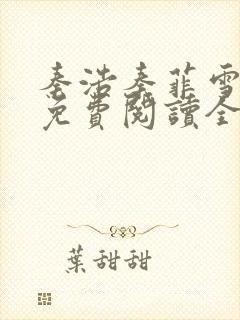 秦浩秦菲雪
免費閱讀全
葉甜甜